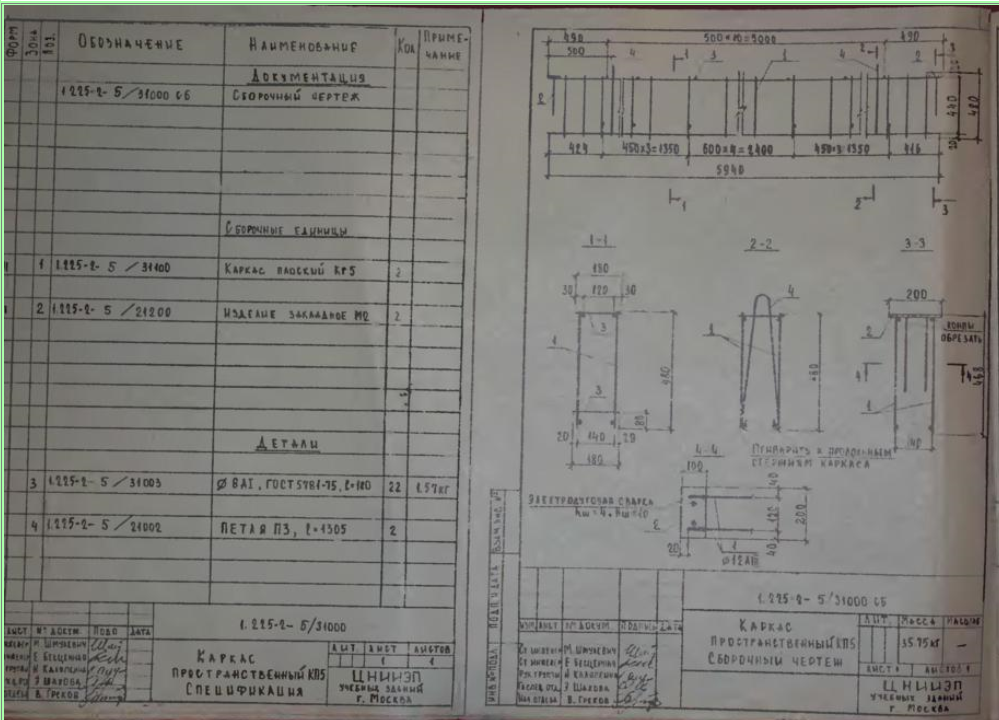 ФОРМ ЗОНА ПОЗ. ОБОЗНАЧЕНИЕ НАИМЕНОВАНИЕ КОЛ ПРИМЕ-
ЧАНИЕ
ДОКУМЕНТАЦИЯ
1.225-2- 5/31000 СБ СБОРОЧНЫЙ ЧЕРТЕЖ
СБОРОЧНЫЕ ЕДИНИЦЫ
1 1.225-2- 5 /31100 КАРКАС ПЛОСКИЙ КР5 2
2 1.225-2- 5 /21200 ИЗДЕЛИЕ ЗАКЛАДНОЕ М2 2
ДЕТАЛИ
3 1.225-2- 5 /31003 Ø 8АI, ГОСТ 5781-75, ℓ=180 22 1.57кг
4 1.225-2- 5 /21002 ПЕТЛЯ П3, ℓ=1305 2
1.225-2- 5/31000
ЛИСТ № ДОКУМ. ПОДП ДАТА
КАРКАС
ПРОСТРАНСТВЕННЫЙ КП5
СПЕЦИФИКАЦИЯ
ЛИТ ЛИСТ ЛИСТОВ
1 1
ЦНИИЭП
УЧЕБНЫХ ЗДАНИЙ
Г. МОСКВА
В. ГРЕКОВ
490 500×10=5000 490
500 4 1 3 1 4 2 2 3
2
440
480
20
424 450×3=1350 600×4=2400 450×3=1350 416
5940
1 2 3
1-1 2-2 3-3
180
30 120 30
200
4
3
1 1 2
КОНЦЫ
ОБРЕЗАТЬ
480 460 468
4
3 1
80
20 140 20
180
140
4-4
ПРИВАРИТЬ К ПРОДОЛЬНЫМ
СТЕРЖНЯМ КАРКАСА
100
ЭЛЕКТРОДУГОВАЯ СВАРКА
40
120
200
40
20 1
Ø12АIII
ИНВ № ПОДЛ ПОДП И ДАТА ВЗАМ. ИНВ. №
1.225-2- 5/31000 СБ
ИЗМ ЛИСТ № ДОКУМ ПОДПИСЬ ДАТА
КАРКАС
ПРОСТРАНСТВЕННЫЙ КП5
СБОРОЧНЫЙ ЧЕРТЕЖ
ЛИТ. МАССА МАСШТАБ
35.75кг –
ЛИСТ 1 ЛИСТОВ 1
ЦНИИЭП
УЧЕБНЫХ ЗДАНИЙ
Г. МОСКВА
В. ГРЕКОВ